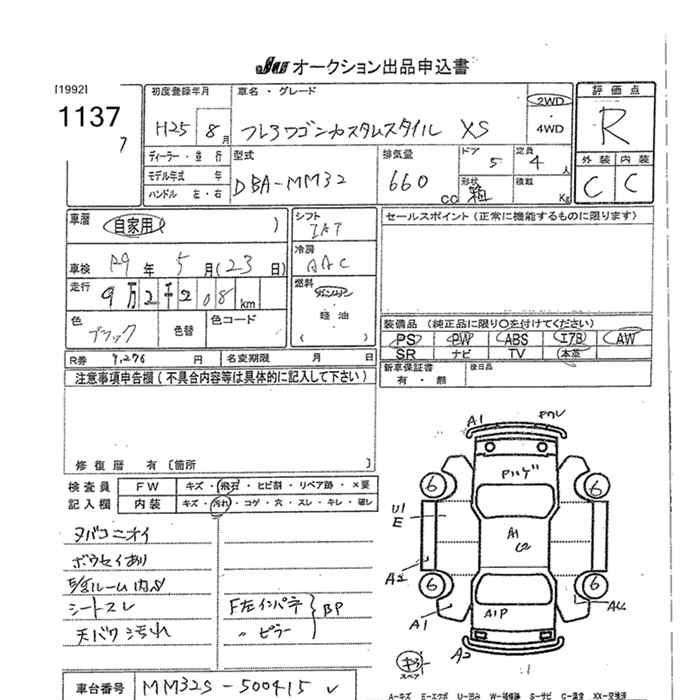 JU オークション出品申込書
[1992]
1137
7
初度登録年月
H25 8月
車名・グレード
フレアワゴンカスタムスタイル XS
2WD
・
4WD
評価点
R
ディーラー・並行
モデル年式 年
ハンドル 左・右
型式
DBA-MM32
排気量
660 CC
ドア
5
定員
4 人
形状
箱
積載
Kg
外装 内装
C C
車歴
自家用 )
シフト
IAT
セールスポイント (正常に機能するものに限ります)
車検 R9年 5月(23日)
冷房
AAC
走行 9万2千208km
燃料
ガソリン
・
軽油
・
( )
色
ブラック
色替
色コード
装備品 (純正品に限り○を付けてください)
PS PW ABS エアB AW
SR ナビ TV 本革
R券 9,276 円 名変期限 月 日
新車保証書
有・無
後日品
注意事項申告欄(不具合内容等は具体的に記入して下さい)
修復歴 有〔箇所 〕
検査員
記入欄
FW キズ・飛石・ヒビ割・リペア跡・×要
内装 キズ・汚れ・コゲ・穴・スレ・キレ・破レ
タバコニオイ
ボウセイあり
シートスレ
天バリ汚れ
F左インパネ
〃 ピラー
BP
A1
Pバゲ
6
6
U1
E
A1
C2
A2
6
6
A1
A1P
A2
キズ
スペア
車台番号 MM32S-500415
A=キズ E=エクボ U=凹み W=補修跡 S=サビ C=腐食 XX=交換済